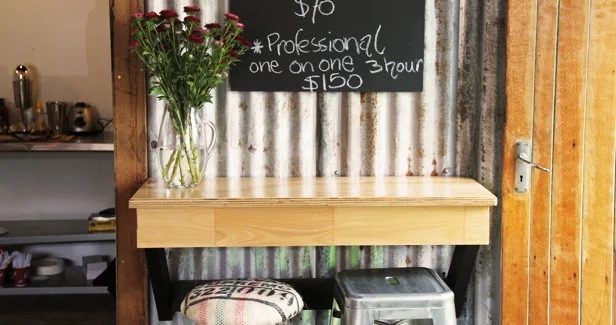 $70
* Professional
one on one 3 hour
$150